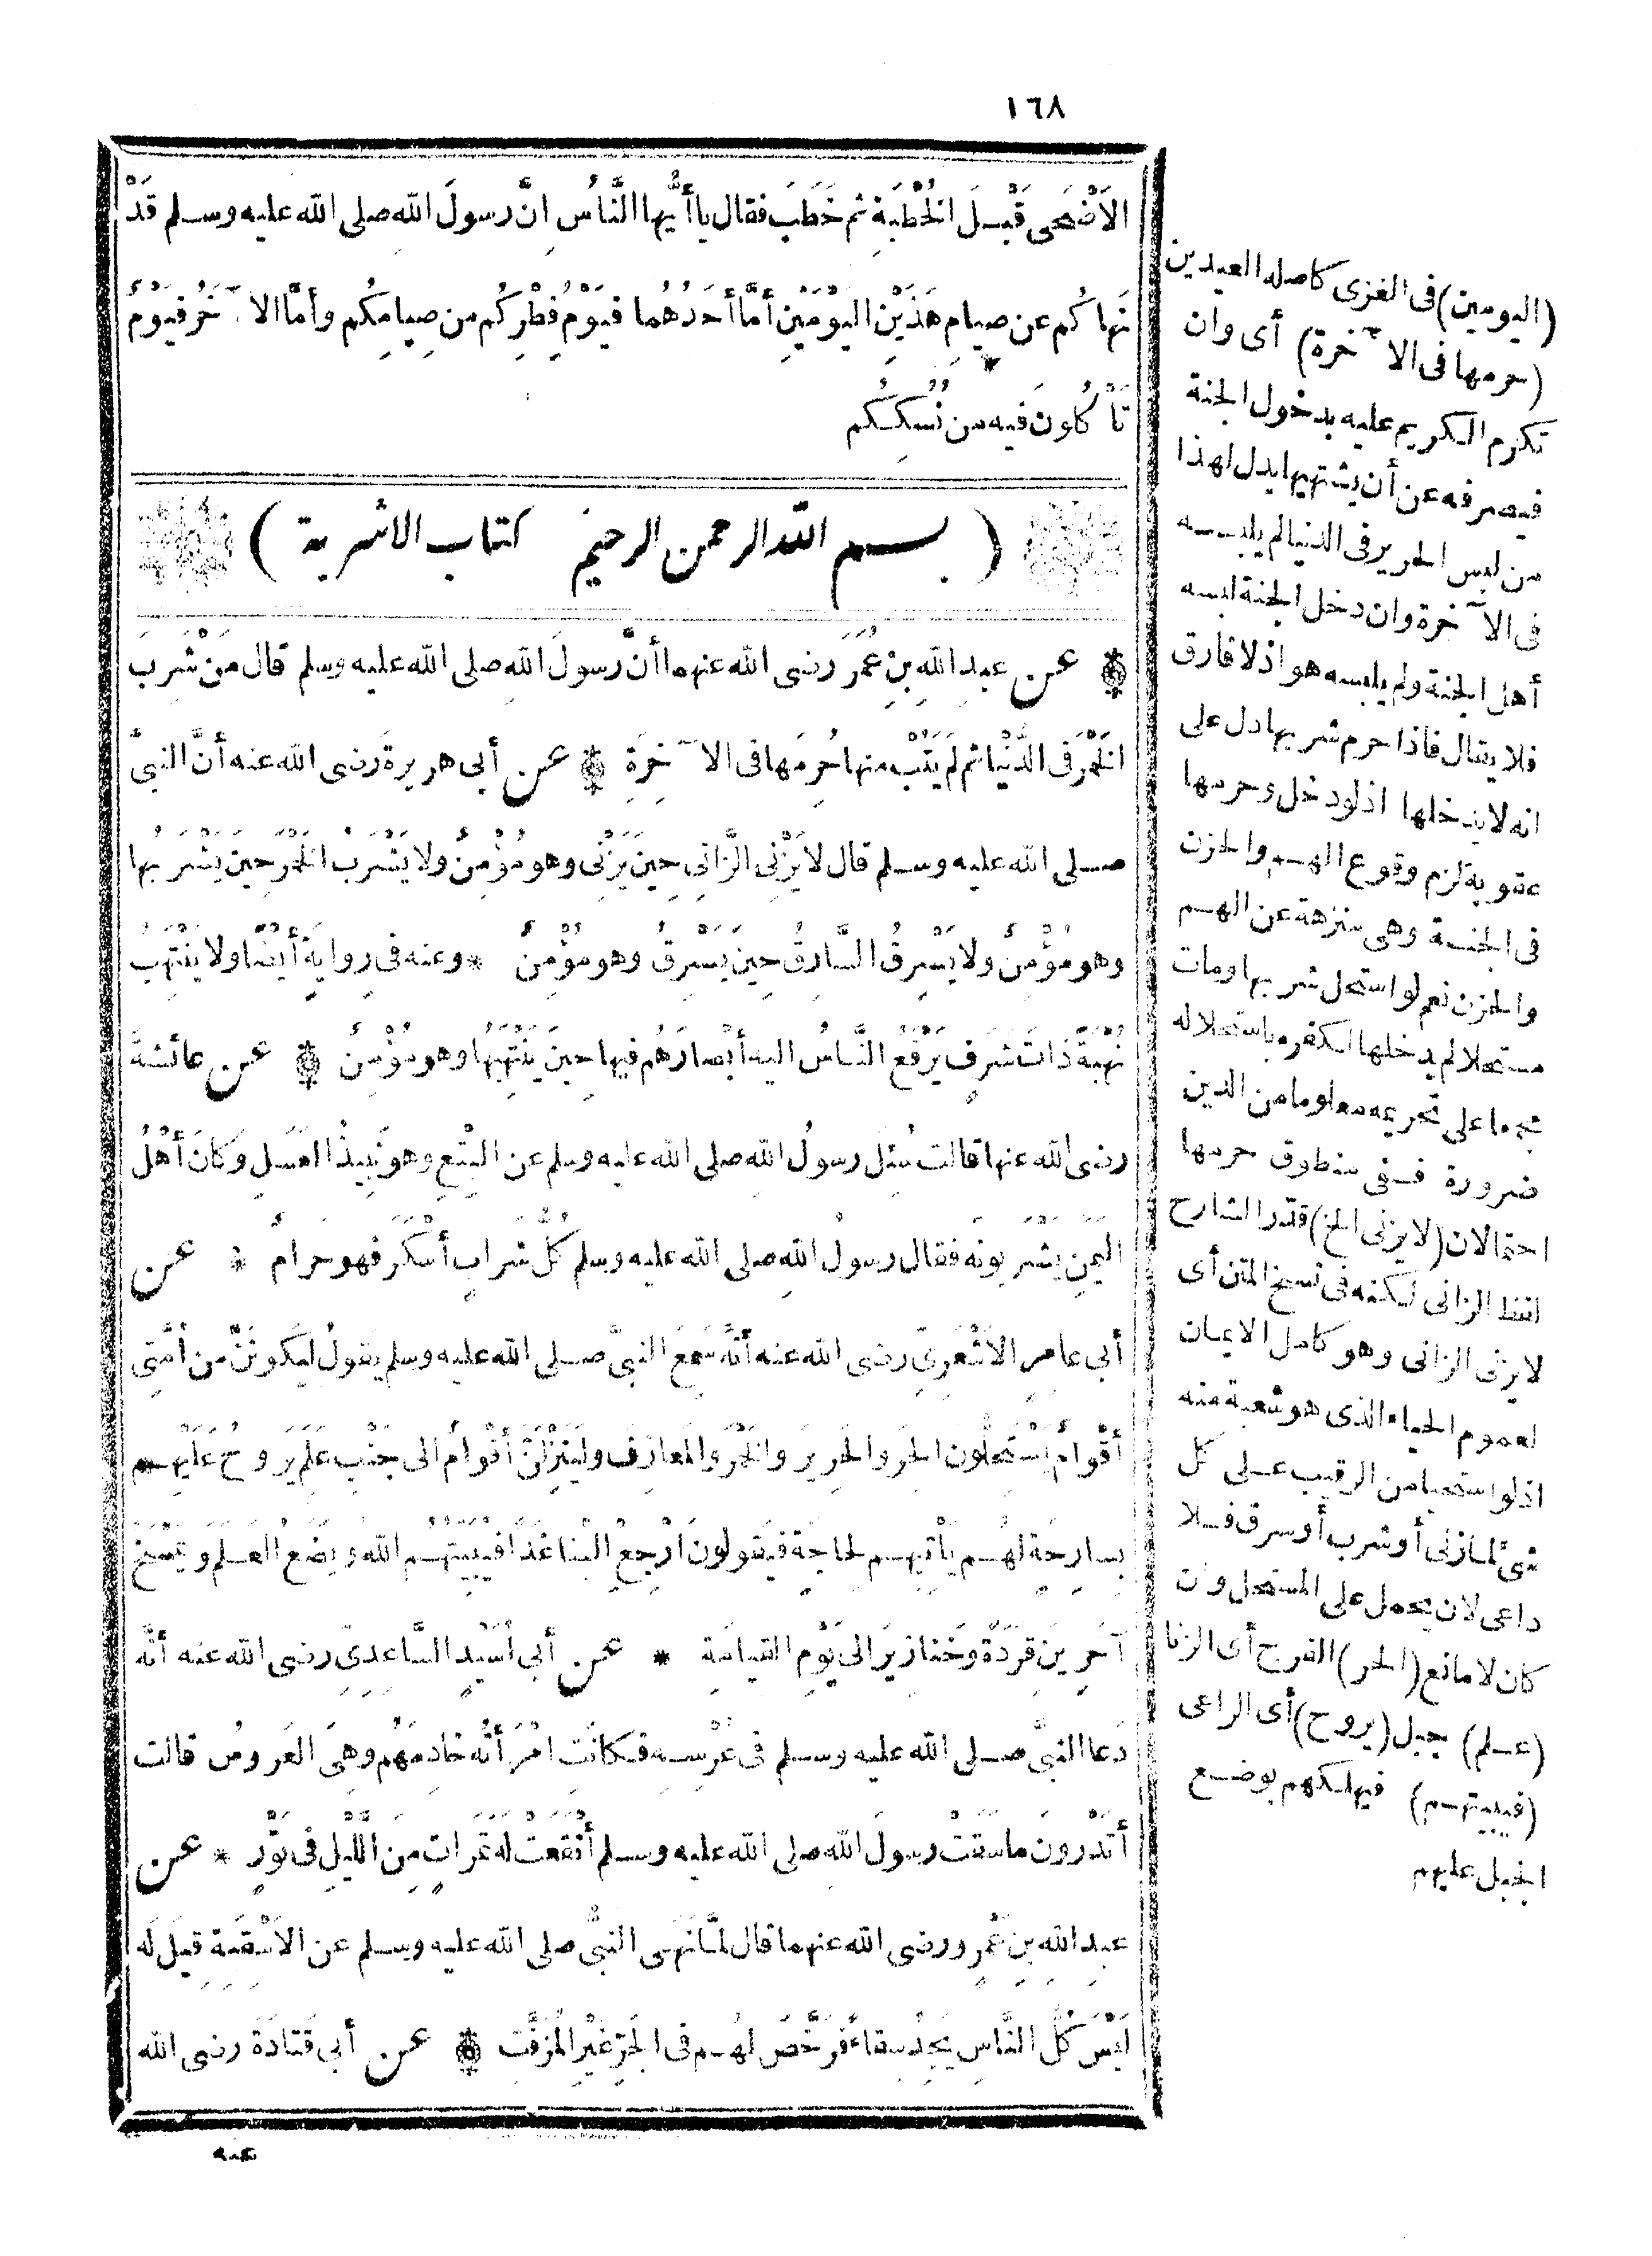 ١٦٨
الاَضْحَى قَبْلَ الخُطْبَةِ ثم خَطَبَ فقال يا أَيُّها النَّاسُ انَّ رسولَ الله صلى الله عليه وسلم قَدْ
نَهاكُم عن صيامِ هَذَيْنِ اليَوْمَيْنِ أمَّا أحَدُهُما فَيَوْمُ فِطْرِكُم من صِيامِكُم وأمَّا الآخَرُ فَيَوْمٌ
تَأْكُلونَ فيه من نُسُكِكُم
(بسم الله الرحمن الرحيم كتاب الاشربة)
عن عبدِ اللهِ بنِ عُمَرَ رضى الله عنهما أنَّ رسولَ اللهِ صلى الله عليه وسلم قال مَنْ شَرِبَ
الخَمْرَ فى الدُّنْيا ثم لَمْ يَتُبْ منها حُرِمَها فى الآخِرَةِ عن أبى هريرةَ رضى الله عنه أنَّ النبىَّ
صلى الله عليه وسلم قال لا يَزْنِى الزَّانِى حِينَ يَزْنِى وهو مُؤْمِنٌ ولا يَشْرَبُ الخَمْرَ حِينَ يَشْرَبُها
وهو مُؤْمِنٌ ولا يَسْرِقُ السَّارِقُ حِينَ يَسْرِقُ وهو مُؤْمِنٌ * وعنه فى رِوايَةٍ أيضًا ولا يَنْتَهِبُ
نُهْبَةً ذاتَ شَرَفٍ يَرْفَعُ النَّاسُ اليه أبْصارَهُم فيها حِينَ يَنْتَهِبُها وهو مُؤْمِنٌ عن عائشةَ
رضى الله عنها قالت سُئِلَ رسولُ اللهِ صلى الله عليه وسلم عن البِتْعِ وهو نَبِيذُ العَسَلِ وكانَ أهْلُ
اليَمَنِ يَشْرَبونَه فقال رسولُ اللهِ صلى الله عليه وسلم كُلُّ شَرابٍ أسْكَرَ فهو حَرامٌ * عن
أبى عامِرٍ الاَشْعَرِىِّ رضى الله عنه أنَّهُ سَمِعَ النبىَّ صلى الله عليه وسلم يقولُ لَيَكُونَنَّ من أُمَّتِى
أقْوامٌ يَسْتَحِلُّونَ الحِرَ والحَرِيرَ والخَمْرَ والمَعازِفَ ولَيَنْزِلَنَّ أقْوامٌ الى جَنْبِ عَلَمٍ يَرُوحُ عَلَيْهِم
بِسارِحَةٍ لَهُم يَأْتِيهِم لحاجَةٍ فيَقولونَ ارْجِعْ الينا غَدًا فيُبَيِّتُهُم اللهُ ويَضَعُ العَلَمَ ويَمْسَخُ
آخَرِينَ قِرَدَةً وخَنازِيرَ الى يَوْمِ القيامَةِ * عن أبى أُسَيْدٍ السَّاعِدِىِّ رضى الله عنه أنَّه
دَعا النبىَّ صلى الله عليه وسلم فى عُرْسِه فكانَت امْرَأتُه خادِمَهُم وهِىَ العَروسُ قالت
أتَدْرونَ ما سَقَتْ رسولَ اللهِ صلى الله عليه وسلم أنْقَعَتْ لَه تَمَراتٍ مِنَ اللَّيْلِ فى تَوْرٍ * عن
عبدِ اللهِ بنِ عَمْرٍو رضى الله عنهما قال لمَّا نَهَى النبىُّ صلى الله عليه وسلم عن الاَسْقِيَةِ قِيلَ لَه
لَيْسَ كُلُّ النَّاسِ يَجِدُ سِقاءً فَرَخَّصَ لَهُم فى الجَرِّ غَيْرِ المُزَفَّتِ عن أبى قَتادَةَ رضى الله
عنه
(اليومين) فى الغزى كاصله العيدين
(حرمها فى الآخرة) أى وان
تكرم الكريم عليه بدخول الجنة
فيصرفه عن أن يشتهيها بدل لهذا
من لبس الحرير فى الدنيا لم يلبسه
فى الآخرة وان دخل الجنة لبسه
أهل الجنة ولم يلبسه هو اذ لا فارق
فلا يقال فاذا حرم شربها دل على
انه لا يدخلها اذ لو دخل وحرمها
عقوبة لزم وقوع الهم والحزن
فى الجنة وهى منزهة عن الهم
والحزن نعم لو استحل شربها ومات
مستحلا لم يدخلها لكفره باستحلاله
مجمعا على تحريمه معلوما من الدين
ضرورة ففى منطوق حرمها
احتمالان (لا يزنى الخ) قدر الشارح
لفظ الزانى لكنه فى نسخ المتن أى
لا يزنى الزانى وهو كامل الايمان
لعموم الحياء الذى هو شعبة منه
اذ لو استحيا من الرقيب على كل
شئ لما زنى أو شرب أو سرق فلا
داعى لان يحمل على المستحل وان
كان لا مانع (الحر) الفرج أى الزنا
(علم) جبل (يروح) أى الراعى
(فيبيتهم) فيهلكهم بوضع
الجبل عليهم